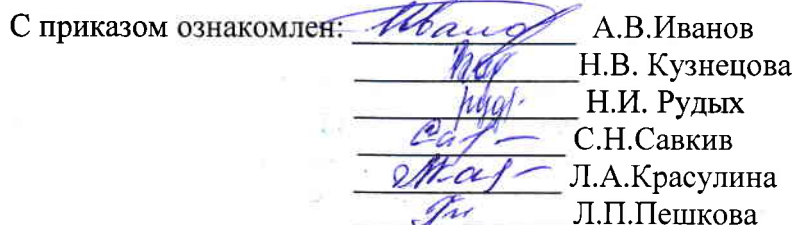 С приказом ознакомлен: А.В.Иванов
Н.В. Кузнецова
Н.И. Рудых
С.Н.Савкив
Л.А.Красулина
Л.П.Пешкова